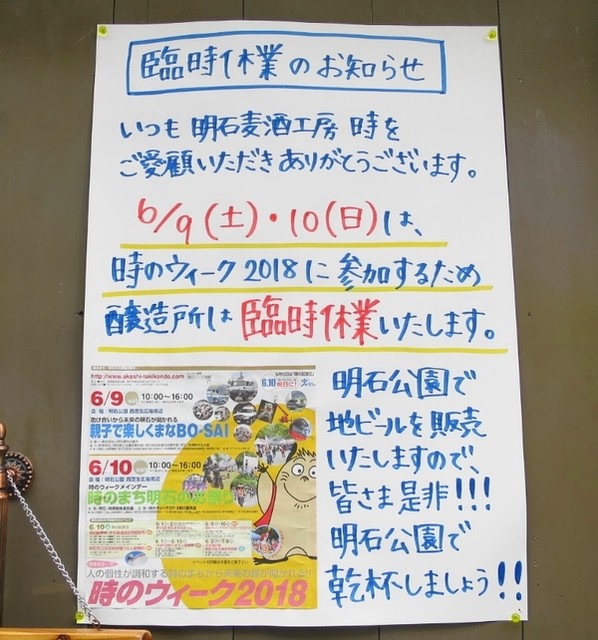 臨時休業のお知らせ
いつも 明石麦酒工房 時を
ご愛顧いただき ありがとうございます。
6/9(土)・10(日)は、
時のウィーク2018に参加するため
醸造所は臨時休業いたします。
明石公園で
地ビールを販売
いたしますので、
皆さま是非!!!
明石公園で
乾杯しましょう!!
http://www.akashi-tokikando.com
6/9 10:00〜16:00
親子で楽しくまなBO-SAI
6/10 10:00〜16:00
時のウィークメインデー
時のまち明石の
人の個性が調和する時のまちから未来の音が聞かれる!!
時のウィーク2018